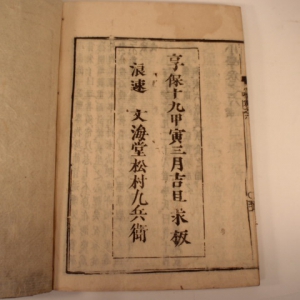 享保十九甲寅三月吉旦求板
浪速　文海堂松村九兵衛